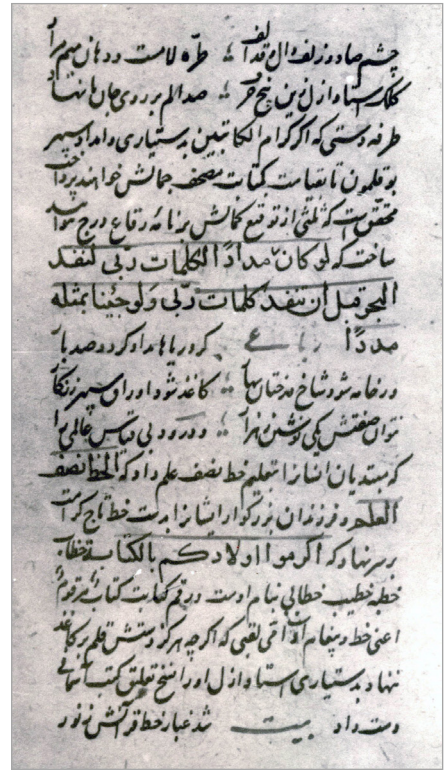 چشم صاد و زلف دال و قد الف ؛ طرّه لامست و دهان میم
کلک استاد ازل زین پنج حرف ؛ صد الم بر روی جان ما نهاد
طرفه دستی که اگر کرام الکاتبین بدستیاری و امداد سپهر
بوقلمون تا قیامت کتابت مصحف جمالش خواهند پرداخت
محقق است که ثلثی از توقیع کمالش بر نامه رقاع درج نتوانند
ساخت که لو کان مدادًا لکلمات ربی لنفد
البحر قبل ان تنفد کلمات ربّی ولو جئنا بمثله
مددًا رباعی کر دریاها مداد کردد صد بار
ور خامه شود شاخ درختان بهار ؛ کاغذ شود اوراق سپهر زنکار
نتوان صفتش یکی نوشتن ز هزار ؛ و درود بی قیاس عالی را
که مبتدیان را بتعلیم خط نصف علم داد که الخط نصف
العلم و فرزندان بزرکوار ایشانرا بدست خط تاج کرامت
بر سر نهاد که اکرموا اولادکم بالکتابة خطابه
خطبه خطیب خطابی بنام اوست و رقم کتابت کتابه مرقوم
اعنی خط و پیغام امی لقبی که اکرچه هرکز دستش قلم بر کاغذ
ننهاد بدستیاری استاد ازل او را نسخ تعلیق کتب آسمانی
دست داد بیت شد غبار خط قرآنش ز نور